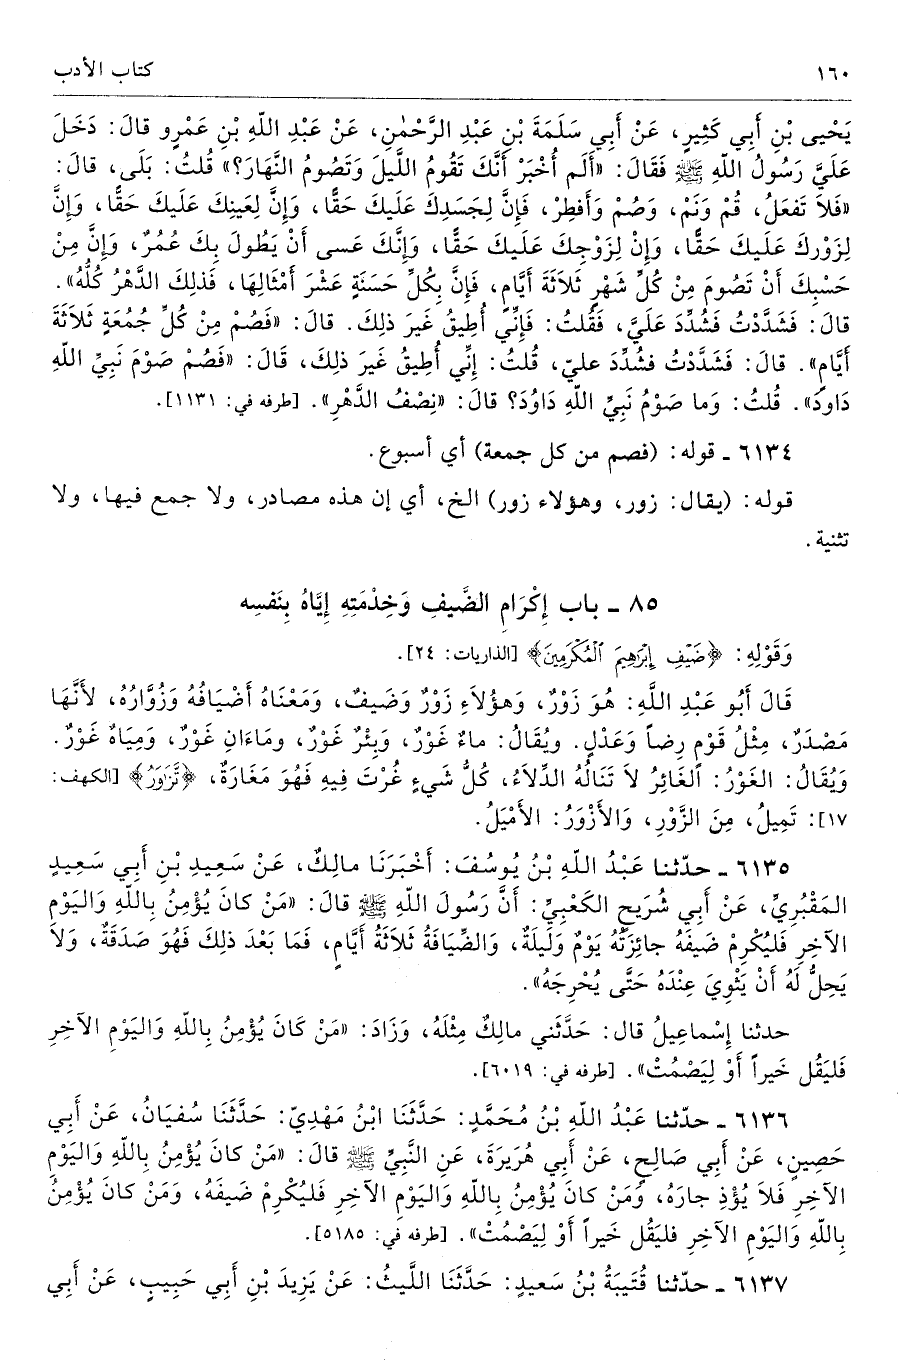 ١٦٠ كتاب الأدب
يَحْيى بْنِ أَبِي كَثِيرٍ، عَنْ أَبِي سَلَمَةَ بْنِ عَبْدِ الرَّحْمٰنِ، عَنْ عَبْدِ اللّهِ بْنِ عَمْرٍو قالَ: دَخَلَ
عَلَيَّ رَسُولُ اللّهِ ﷺ فَقَالَ: «أَلَم أُخْبَرْ أَنَّكَ تَقُومُ اللَّيلَ وَتَصُومُ النَّهَارَ؟» قُلتُ: بَلَى، قالَ:
«فَلاَ تَفعَلُ، قُمْ وَنَمْ، وَصُمْ وَأَفطِرْ، فَإِنَّ لِجَسَدِكَ عَلَيكَ حَقًّا، وَإِنَّ لِعَينِكَ عَلَيكَ حَقًّا، وَإِنَّ
لِزَوْرِكَ عَلَيكَ حَقًّا، وَإِنَّ لِزَوْجِكَ عَلَيكَ حَقًّا، وَإِنَّكَ عَسى أَنْ يَطُولَ بِكَ عُمُرٌ، وَإِنَّ مِنْ
حَسْبِكَ أَنْ تَصُومَ مِنْ كُلِّ شَهْرٍ ثَلاَثَةَ أَيَّامٍ، فَإِنَّ بِكُلِّ حَسَنَةٍ عَشْرَ أَمْثَالِهَا، فَذلِكَ الدَّهْرُ كُلُّهُ».
قالَ: فَشَدَّدْتُ فَشُدِّدَ عَلَيَّ، فَقُلتُ: فَإِنِّي أُطِيقُ غَيرَ ذلِكَ. قالَ: «فَصُمْ مِنْ كُلِّ جُمُعَةٍ ثَلاَثَةَ
أَيَّامٍ». قالَ: فَشَدَّدْتُ فشُدِّدَ عليّ، قُلتُ: إِنِّي أُطِيقُ غَيرَ ذلِكَ، قَالَ: «فَصُمْ صَوْمَ نَبِيِّ اللّهِ
دَاوُدَ». قُلتُ: وَما صَوْمُ نَبِيِّ اللّهِ دَاوُدَ؟ قالَ: «نِصْفُ الدَّهْرِ». [طرفه في: ١١٣١].
٦١٣٤ - قوله: (فصم من كل جمعة) أي أسبوع.
قوله: (يقال: زور، وهؤلاء زور) الخ، أي إن هذه مصادر، ولا جمع فيها، ولا
تثنية.
٨٥ - باب إِكْرَامِ الضَّيفِ وَخِدْمَتِهِ إِيَّاهُ بِنَفسِه
وَقَوْلِهِ: ﴿ضَيْفِ إِبْرَهِيمَ ٱلْمُكْرَمِينَ﴾ [الذاريات: ٢٤].
قَالَ أَبُو عَبْدِ اللَّهِ: هُوَ زَوْرٌ، وَهؤُلاَءِ زَوْرٌ وَضَيفٌ، وَمَعْنَاهُ أَضْيَافُهُ وَزُوَّارُهُ، لأَنَّهَا
مَصْدَرٌ، مِثْلُ قَوْمٍ رِضاً وَعَدْلٍ. ويُقَالُ: ماءٌ غَوْرٌ، وَبِئْرٌ غَوْرٌ، وماءَانِ غَوْرٌ، وَمِيَاهٌ غَوْرٌ.
وَيُقَالُ: الغَوْرُ: ٱلغَائِرُ لاَ تَنَالُهُ الدِّلاَءُ، كُلُّ شَيءٍ غُرْتَ فِيهِ فَهُوَ مَغَارَةٌ، ﴿تَّزَٰوَرُ﴾ [الكهف:
١٧]: تَمِيلُ، مِنَ الزَّوْرِ، وَالأَزْوَرُ: الأَمْيَلُ.
٦١٣٥ - حدّثنا عَبْدُ اللّهِ بْنُ يُوسُفَ: أَخْبَرَنَا مالِكٌ، عَنْ سَعِيدِ بْنِ أَبِي سَعِيدٍ
المَقْبُرِيِّ، عَنْ أَبِي شُرَيحٍ الكَعْبِيِّ: أَنَّ رَسُولَ اللّهِ ﷺ قالَ: «مَنْ كانَ يُؤْمِنُ بِاللّهِ وَاليَوْمِ
الآخِرِ فَليُكْرِمْ ضَيفَهُ جائِزَتُهُ يَوْمٌ وَلَيلَةٌ، وَالضِّيَافَةُ ثَلاَثَةُ أَيَّامٍ، فَمَا بَعْدَ ذلِكَ فَهُوَ صَدَقَةٌ، وَلاَ
يَحِلُّ لَهُ أَنْ يَثْوِيَ عِنْدَهُ حَتَّى يُحْرِجَهُ».
حدثنا إِسْماعِيلُ قال: حَدَّثَني مالِكٌ مِثْلَهُ، وَزَادَ: «مَنْ كَانَ يُؤْمِنُ بِاللّهِ وَاليَوْمِ الآخِرِ
فَليَقُل خَيراً أَوْ لِيَصْمُتْ». [طرفه في: ٦٠١٩].
٦١٣٦ - حدّثنا عَبْدُ اللّهِ بْنُ مُحَمَّدٍ: حَدَّثَنَا ابْنُ مَهْدِيّ: حَدَّثَنَا سُفيَانُ، عَنْ أَبِي
حَصِينٍ، عَنْ أَبِي صَالِحٍ، عَنْ أَبِي هُرَيرَةَ، عَنِ النَّبِيِّ ﷺ قالَ: «مَنْ كانَ يُؤْمِنُ بِاللّهِ وَاليَوْمِ
الآخِرِ فَلاَ يُؤْذِ جارَهُ، وَمَنْ كانَ يُؤْمِنُ بِاللّهِ وَاليَوْمِ الآخِرِ فَليُكْرِمْ ضَيفَهُ، وَمَنْ كانَ يُؤْمِنُ
بِاللّهِ وَاليَوْمِ الآخِرِ فليَقُل خَيراً أَوْ لِيَصْمُتْ». [طرفه في: ٥١٨٥].
٦١٣٧ - حدّثنا قُتَيبَةُ بْنُ سَعِيدٍ: حَدَّثَنَا اللَّيثُ: عَنْ يَزِيدَ بْنِ أَبِي حَبِيبٍ، عَنْ أَبِي